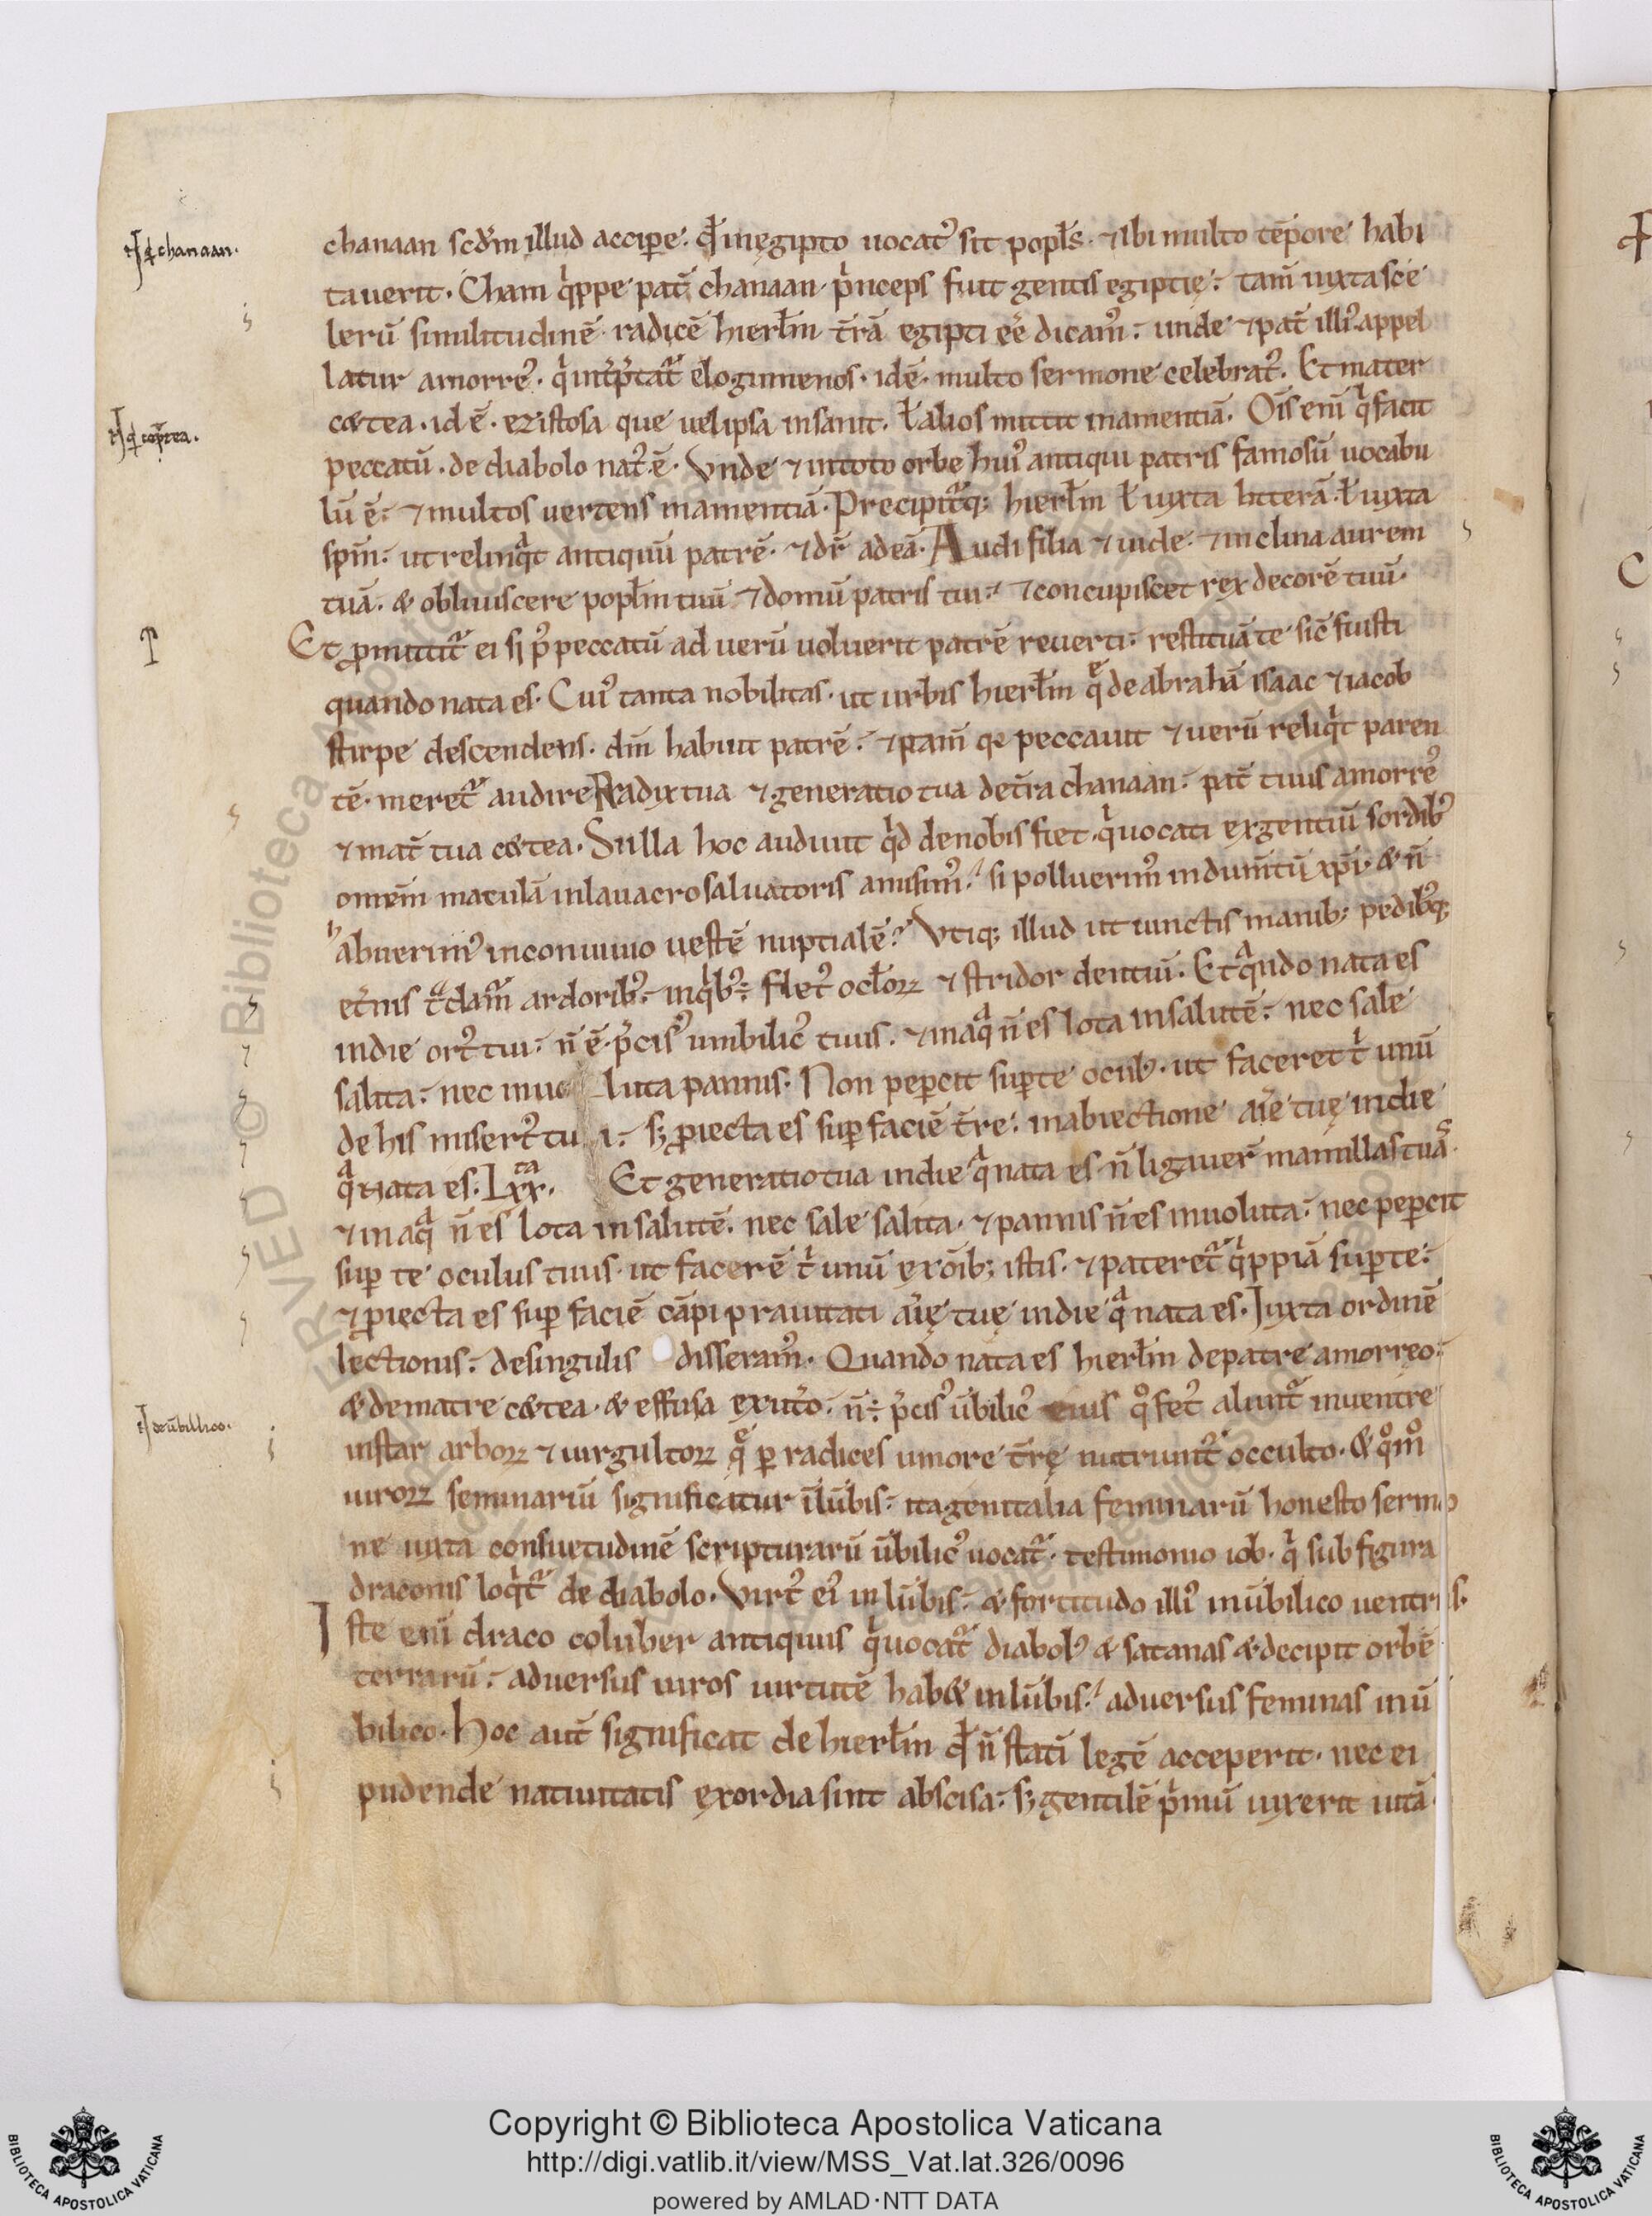 chanaan scđm illud accipe. qđ inęgipto uocatꝰ sit popłs. ⁊ ibi multo tēpore habi
tauerit. Cham qͥppe pat̄ chanaan pͥnceps fuit gentis egiptię. tam̄ iuxta sce
lerū similitudinē radicē hierłm t̄rā egipti eē dicamꝰ. unde ⁊ pat̄ illiꝰ appel
latur amorreꝰ. qͥ int̄p̄tat᷑ elogumenos. idē. multo sermone celebratꝰ. Et mater
c&tea. id ē. ezistosa que uel ipsa insanit. ł alios mittit inamentiā. Oīs eni qͥ facit
peccatū. de diabolo natꝰ ē. Vnde ⁊ intoto orbe huiꝰ antiqui patris famosū uocabu
lū ē. ⁊ multos uertens inamentiā. Precipit᷑q; hierłm ł iuxta litterā. ł iuxta
spm̄. ut relinqͣt antiquū patrē. ⁊ dr̄ adeā. Audi filia ⁊ uide. ⁊ inclina aurem
tuā. & obliuiscere popłm tuū ⁊ domū patris tui. ⁊ concupiscet rex decorē tuū.
Et ꝓmittit᷑ ei si pꝰ peccatū ad uerū uoluerit patrē reuerti. restituā te sic̄ fuisti
quando nata es. Cuiꝰ tanta nobilitas. ut urbis hierłm qͤ de abrahā isaac ⁊ iacob
stirpe descendens. dn̄i habuit patrē. ⁊ tam̄ qꝛ peccauit ⁊ uerū reliqͥt paren
tē. meret᷑ audire Radix tua ⁊ generatio tua det̄ra chanaan. pat̄ tuus amorreꝰ
⁊ mat̄ tua c&tea. Si illa hoc audiuit qͥd denobis fiet. qͥ uocati exgentiū sordibꝰ
omnem̄ maculā inlauacro saluatoris amisimꝰ. si polluerimꝰ indum̄tū xp̄i. & n̄
habuerimꝰ inconuiuio uestē nuptialē. Vtiq; illud ut iunctis manib; pedibꝰq;
et̄nis t̄dam᷑ ardoribꝰ. inqͥbꝰ fletꝰ ocłoꝝ ⁊ stridor dentiū. Et qͣndo nata es
indie ortꝰ tui. n̄ ē. p̄cisꝰ umbilicꝰ tuus. ⁊ inaqͣ n̄ es lota insalutē. nec sale
salita. nec inuo luta pannis. Non pepcit supte ocułs. ut faceret tͥ unū
de his misertꝰ tu i. sꝫ ꝓiecta es sup faciē t̄re. inabiectione aīe tuę indie
qͣ nata es. Lxx.ta Et generatio tua indie qͣ nata es n̄ ligauer̄ mamillas tuas.
⁊ inaqͣ n̄ es lota insalutē. nec sale salita. ⁊ pannis n̄ es inuoluta. nec pepcit
sup te oculus tuus ut facerē tͥ unū exōib; istis. ⁊ pateret᷑ qͥppiā supte.
⁊ ꝓiecta es sup faciē cāpi prauitati aīę tuę indie qͣ nata es. Iuxta ordinē
lectionis. desingulis disseramꝰ. Quando nata es hierłm depatre amorreo
& dematre c&tea. & effusa ex utꝰo. n̄ p̄cisꝰ ūbilicꝰ eius qͦ fetꝰ alunt᷑ inuentre
instar arboꝝ ⁊ uirgultoꝝ qͤ p radices umore t̄rę nutriunt᷑ occulto. & qͦmͦ
uiroꝝ seminariū significatur ilūbis. ita genitalia feminarū honesto sermo
ne iuxta consuetudinē scripturarū ūbilicꝰ uocat᷑. testimonio iob. qͥ sub figura
draconis loqͥt᷑ de diabolo. Virtꝰ eiꝰ in lūbis. & fortitudo illiꝰ inūbilico uentris.
Iste eni draco coluber antiquus qͥ uocatꝰ diabolꝰ & satanas & decipit orbē
terrarū. aduersus uiros uirtutē hab& inlūbis. aduersus feminas inū
bilico. Hoc aut̄ significat de hierłm qđ n̄ stati legē acceperit. nec ei
pudende natiuitatis exordia sint abscisa. sꝫ gentilē pͥmū uixerit uitā
qđ chanaan.
deūbilico.
Copyright © Biblioteca Apostolica Vaticana
http://digi.vatlib.it/view/MSS_Vat.lat.326/0096
powered by AMLAD·NTT DATA
BIBLIOTECA APOSTOLICA VATICANA
BIBLIOTECA APOSTOLICA VATICANA